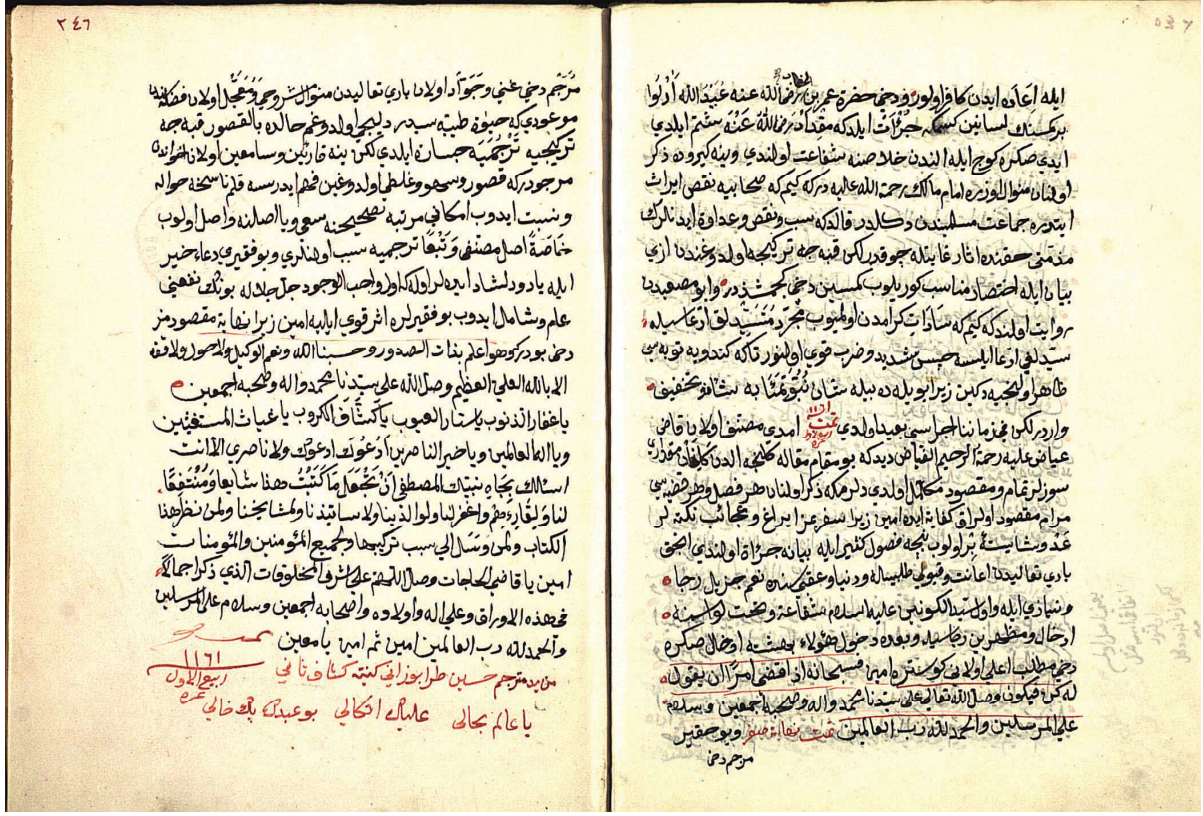 ايله اعاده ايدن كافر اولور ودخى حضرة عمر بن الخطاب رضى الله عنه عبيد الله
بر كمسنك لسانين كسمكه جرأت ايلدكه مقداد رضى الله عنه شتم ايلدى
ايدى صكره كوج ايله الندن خلاصنه شفاعت اولندى وينه كيروده ذكر
اولنان منوال اوزره امام مالك رحمة الله عليه ديركه كيم كه صحابيه نقص ايراث
ايتديره جماعت مسلميندن دكلدر قالدكه سب ونقص وعداوة ايدنلرك
مذمتى حقنده اثار غايتله جوقدر لكن قبه جه تركيجه اولدوغندن ازى
بيان ايله اختصار مناسب كوريلوب كمسين دخى كجشدر وابو مصعبدن
روايت اولندكه كيم كه سادات كرامدن اولميوب مجرد سيدلق ادعا سيله
سيدلغى ادعا ايلسه حبس شديد وضرب قوى اولنور تاكه كندويه توبه سى
ظاهر اولنجيه دكين زيرا بويله ديله شان نبوتمئابه
واردر لكن فى زماننا اجراسى بعيد اولدى
تمت
١١٦١
امدى مصنف اولان قاضى
عياض عليه رحمة الرحيم الفياض ديدكه بو مقام مقاله كلنجه الدن كلدكى مقدار
سوزلر تمام ومقصود مكمل اولدى ديلرم كه ذكر اولنان هر فصل وهر قضيه سى
مرام مقصود اولراق كفايه ايده امين زيرا سفر عز ابراغ وعجائب نكته لر
بر اولوب نيجه فصول كثير ايله بيانه جرأة اولندى انجق
بارى تعاليدن اعانت وقبولى طلبيله ودنيا وعقباسنده نعم جزيل رجا
ونيازى ايله واول سيد الكونين عليه السلام شفاعة وتحت لواسنه
ادخال ومظهرين رجاسيله وبعده دخول هؤلاء بهشته ادخال صكره
دخى مطلب اعلى اولانى كوستره امين فسبحانه اذا قضى امرا ان يقول
له كن فيكون وصل الله تعالى على سيدنا محمد واله وصحبه اجمعين وسلام
على المرسلين والحمد لله رب العالمين تمت وبو حقير
مترجم دخى
٢٤٦
مترجم دخى غنى وجواد اولان بارى تعاليدن منوال مشروحى ومعجل اولان
موعودى كه حيوة طيبه سيدر ديليجى اولدوغم حالده بالقصور قبه جه
تركيجيه ترجميه جسارة ايلدى لكن ينه قارئين وسامعين اولان
مرجودركه قصور وسهو وغلطى اولدوغين فهم ايدرسه قلم ناسخه حواله
ونسبت ايدوب امكانى مرتبه تصحيحنه سعى ويا اصلنه واصل اولوب
خاصة اصل مصنفى وتبعا ترجميه سبب اولنلرى وبو فقيرى دعاء خير
ايله ياد ودلشاد ايده لر اوله كه اول واجب الوجود جل جلاله بونك نفعنى
عام وشامل ايدوب بو فقيرلره اثر قوى ايليه امين زيرا نهاية مقصودمز
دخى بودر وهو اعلم بذات الصدور وحسبنا الله ونعم الوكيل ولا حول ولا قوة
الا بالله العلى العظيم وصل الله على سيدنا محمد واله وصحبه اجمعين
يا غفار الذنوب يا ستار العيوب يا كشاف الكروب يا غياث المستغيثين
ويا اله العالمين ويا خير الناصرين ادعوك ادعوك ولا ناصرى الا انت
اسئالك بجاه نبيك المصطفى ان تجعل ما كتبت هذا شايعا ومنتفعا
لنا ولقارئه واغفر لنا ولوالدينا ولاساتيذنا ولمشايخنا ولمن نظر هذا
الكتاب ولمن وسل الى سبب تركيبها ولجميع المؤمنين والمؤمنات
امين يا قاضى الحاجات وصل اللهم على اشرف المخلوقات الذى ذكر اجمالا
فى هذه الاوراق وعلى اله واولاده واصحابه اجمعين وسلام على المرسلين
والحمد لله رب العالمين امين ثم امين يا معين
تمت
من يد مترجم حسين طرابوزانى كتبه
١١٦١
ربيع الاول
غره
يا عالم بحالى عليك اتكالى